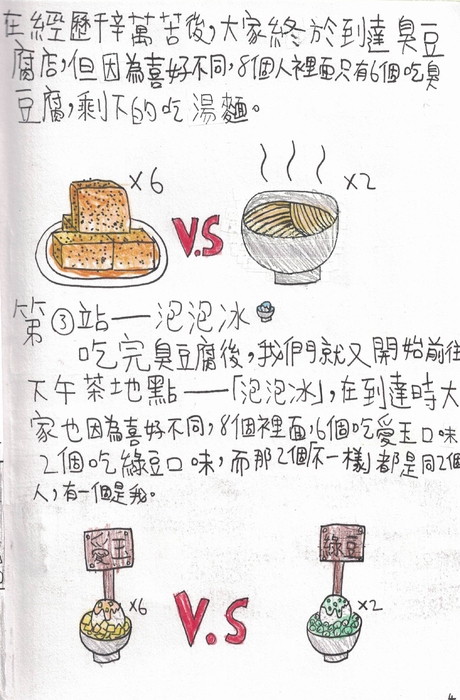 在經歷千辛萬苦後,大家終於到達臭豆
腐店,但因為喜好不同,8個人裡面只有6個吃臭
豆腐,剩下的吃湯麵。
x6
V.S
x2
第③站—泡泡冰
吃完臭豆腐後,我們就又開始前往
下午茶地點—「泡泡冰」,在到達時大
家也因為喜好不同,8個裡面,6個吃愛玉口味
2個吃綠豆口味,而那2個「不一樣」都是同2個
人,有一個是我。
愛玉
綠豆
x6
V.S
x2